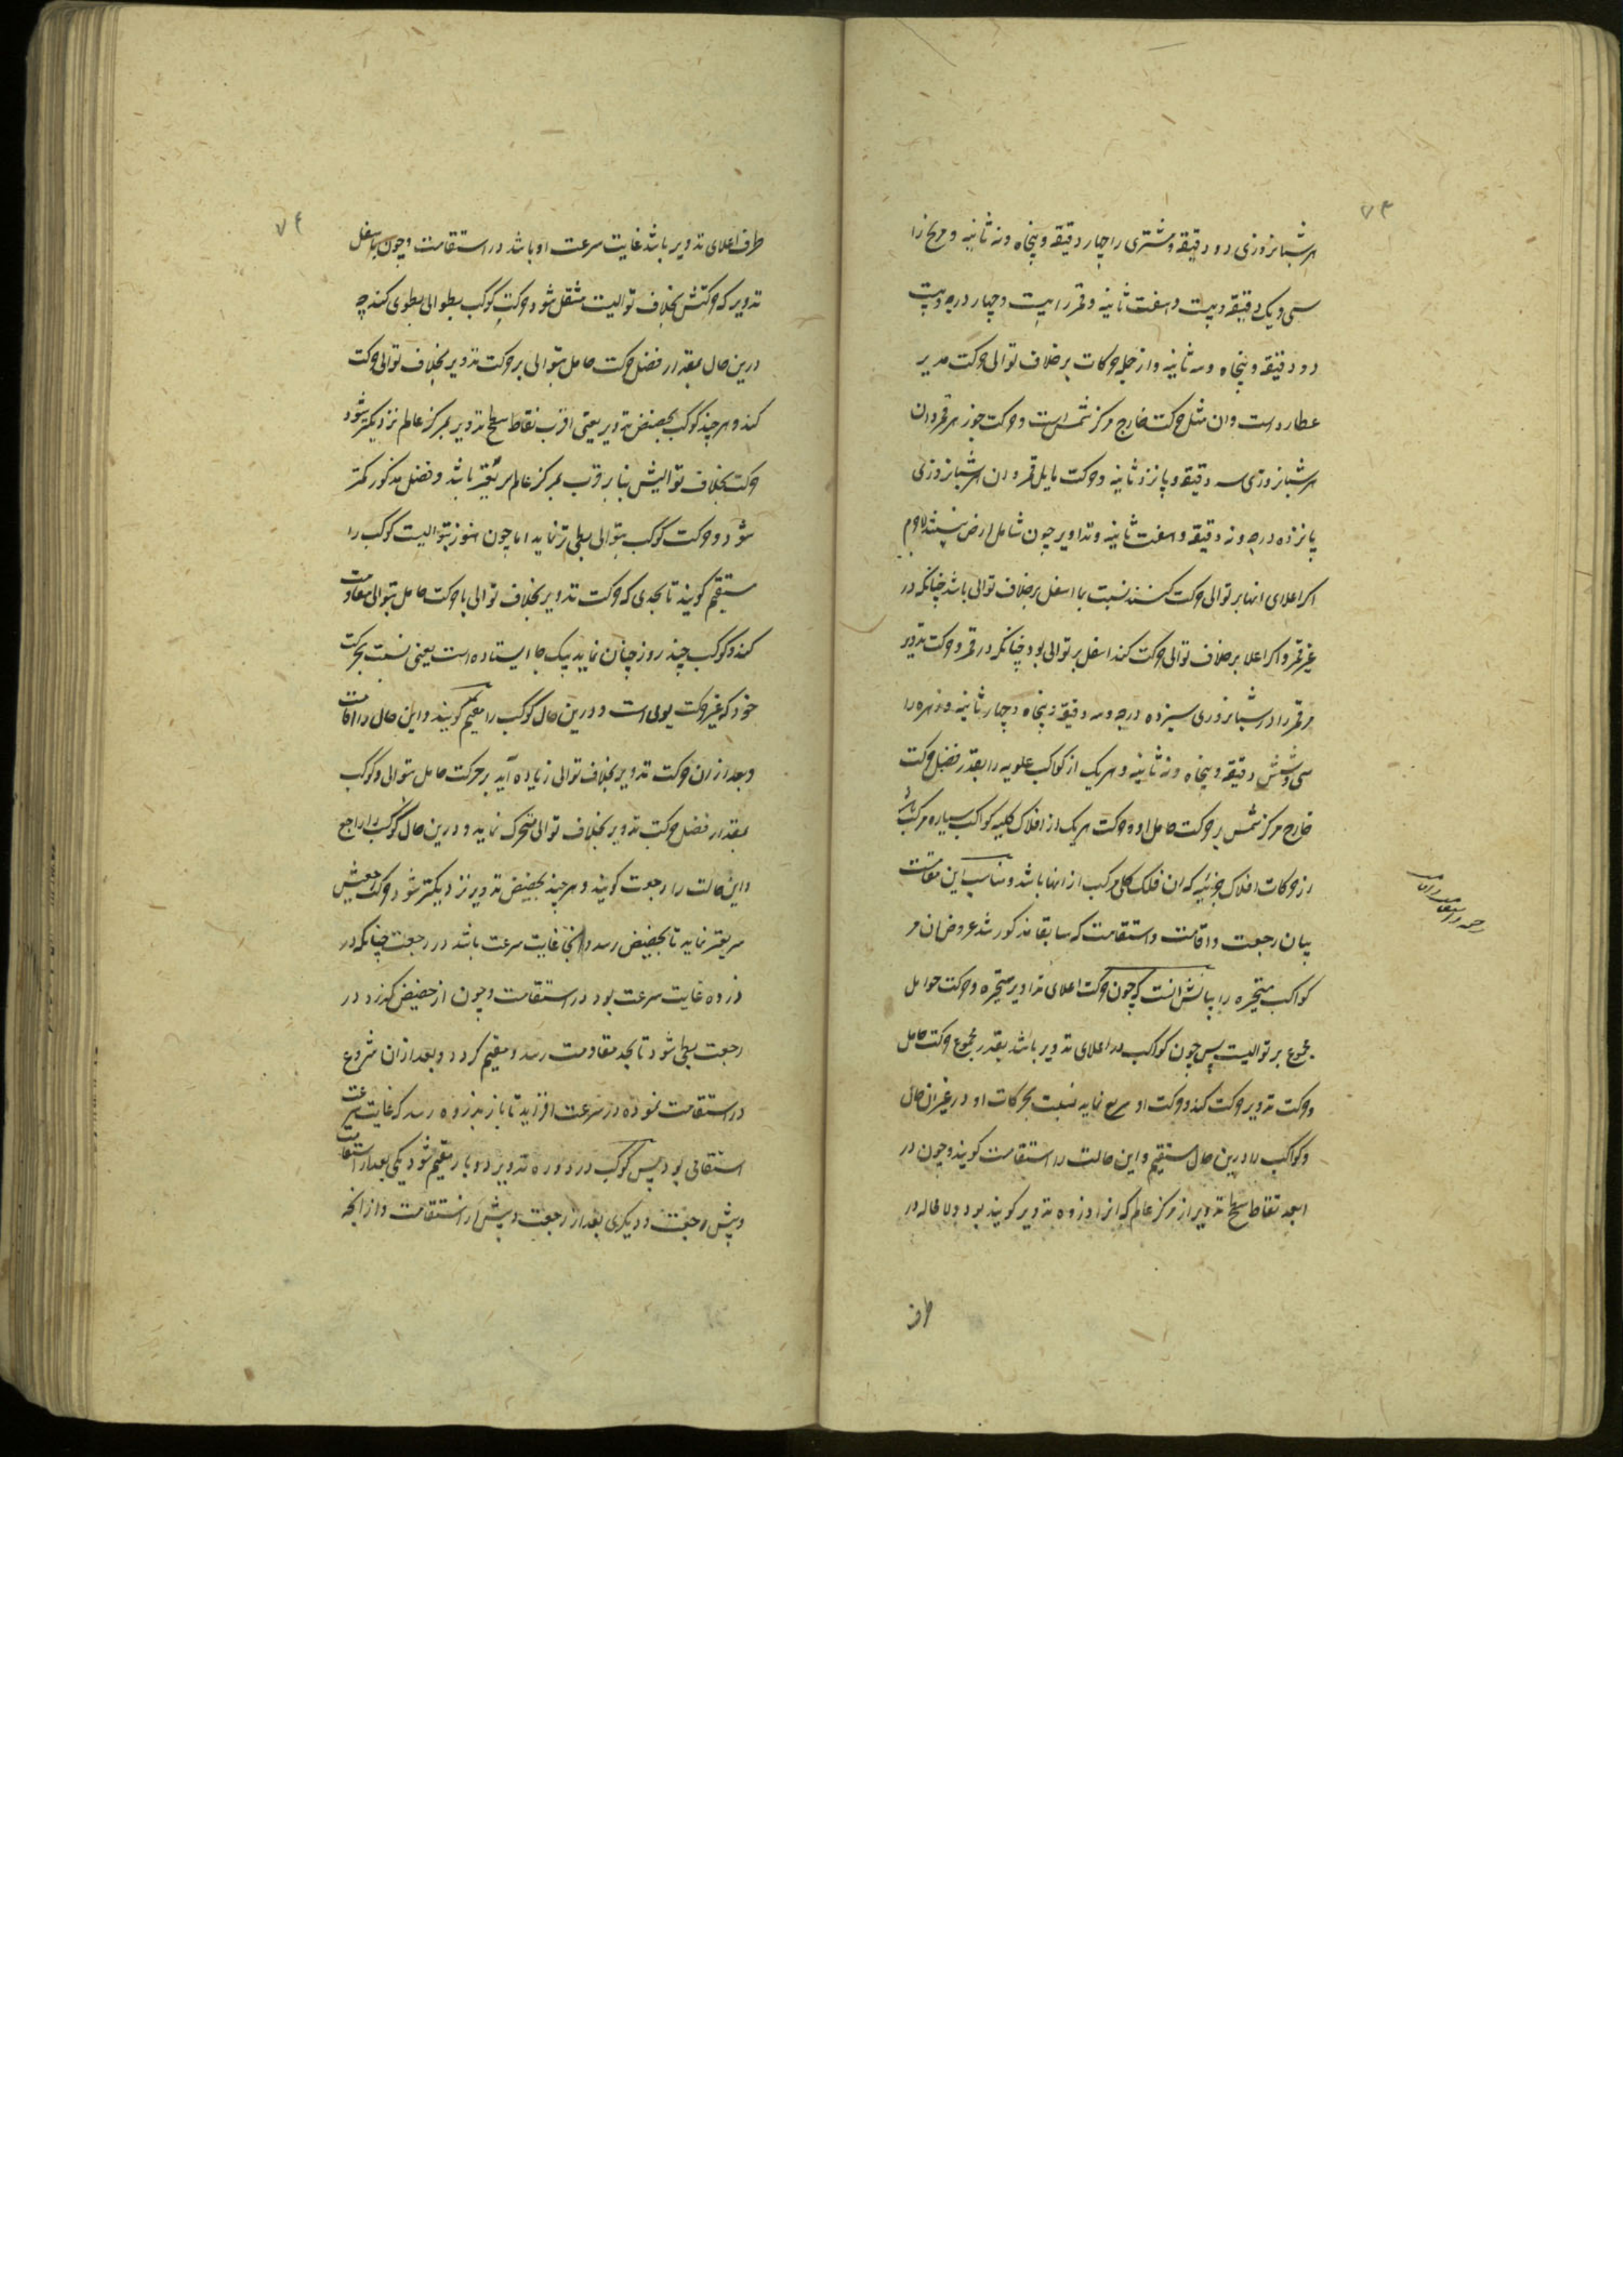 ۷۳
هر شبانروزی دو دقیقه و مشتری را چهار دقیقه و پنجاه ونه ثانیه و مریخ را
سی ویک دقیقه و بیست و هفت ثانیه و قمر را بیست و چهار درجه و بیست
دو دقیقه و پنجاه وسه ثانیه و از جمله حرکات بر خلاف توالی حرکت مدیر
عطارد است و ان مثل حرکت خارج مرکز شمس است و حرکت جوزهر قمر و ان
هر شبانروزی سه دقیقه و یازده ثانیه و حرکت مایل قمر و ان هر شبانروزی
یازده درجه و نه دقیقه و هفت ثانیه و تداویر چون شامل ارض نیستند لاجرم
اکر اعلای انها بر توالی حرکت کنند نسبت با اسفل بر خلاف توالی باشد چنانکه در
غیر قمر و اکر اعلا بر خلاف توالی حرکت کند اسفل بر توالی بود چنانکه در قمر و حرکت تدویر
مر قمر را در شبانروزی سیزده درجه وسه دقیقه و پنجاه و چهار ثانیه و زهره را
سی وشش دقیقه و پنجاه ونه ثانیه و هر یک از کواکب علویه را بقدر فضل حرکت
خارج مرکز شمس بر حرکت حامل او و حرکت هر یک از افلاک کلیه کواکب سیاره مرکب باشد
از حرکات افلاک جزئیه که ان فلک کلی مرکب از انها باشد و مناسب این مقامست
بیان رجعت و اقامت و استقامت که سابقا مذکور شد عروض ان مر
کواکب متحیره را بیانش انست که چون حرکت اعلای تداویر متحیره و حرکت حوامل
مجموع بر توالیست پس چون کواکب در اعلای تدویر باشد بقدر مجموع حرکت حامل
و حرکت تدویر حرکت کند و حرکت او سریع نماید نسبت بحرکات او در غیر ان حال
و کواکب را درین حال مستقیم و این حالت را استقامت کویند و چون در
ابعد نقاط سطح تدویر از مرکز عالم که انرا ذروه تدویر کویند بود و لا محاله در
طرف
رجعت و استقامت و اقامت
۷۴
طرف اعلای تدویر باشد غایت سرعت او باشد در استقامت و چون باسفل
تدویر که حرکتش بخلاف توالیست منتقل شود حرکت کوکب بطوالی بطوی کند چه
درین حال بمقدار فضل حرکت حامل بتوالی بر حرکت تدویر بخلاف توالی حرکت
کند و هر چند کوکب بحضیض تدویر یعنی اقرب نقاط سطح تدویر بمرکز عالم نزدیکتر شود
حرکت بخلاف توالیش بنا بر قرب بمرکز عالم سریعتر باشد و فضل مذکور کمتر
شود و حرکت کوکب بتوالی بطی تر نماید اما چون هنوز بتوالیست کوکب را
مستقیم کویند تا بحدی که حرکت تدویر بخلاف توالی با حرکت حامل بتوالی مقاومت
کند و کوکب چند روز چنان نماید که یک جا ایستاده است یعنی نسبت بحرکت
خود که غیر حرکت یومی است و درین حال کوکب را مقیم کویند و این حال را اقامت
و بعد از ان حرکت تدویر بخلاف توالی زیاده آید بر حرکت حامل بتوالی و کوکب
بمقدار فضل حرکت تدویر بخلاف توالی متحرک نماید و درین حال کوکب را راجع
و این حالت را رجعت کویند و هر چند بحضیض تدویر نزدیکتر شود حرکت رجعتیش
سریعتر نماید تا بحضیض رسد و انجا غایت سرعت باشد در رجعت چنانکه در
ذروه غایت سرعت بود در استقامت و چون از حضیض کذرد در
رجعت بطی شود تا بحد مقاومت رسد و مقیم کردد و بعد از ان شروع
در استقامت نموده در سرعت افزاید تا باز بذروه رسد که غایت سرعت
استقامتی بود پس کوکب در دوره تدویر دو بار مقیم شود یکی بعد از استقامت
و پیش از رجعت و دیکری بعد از رجعت و پیش از استقامت و از انجه